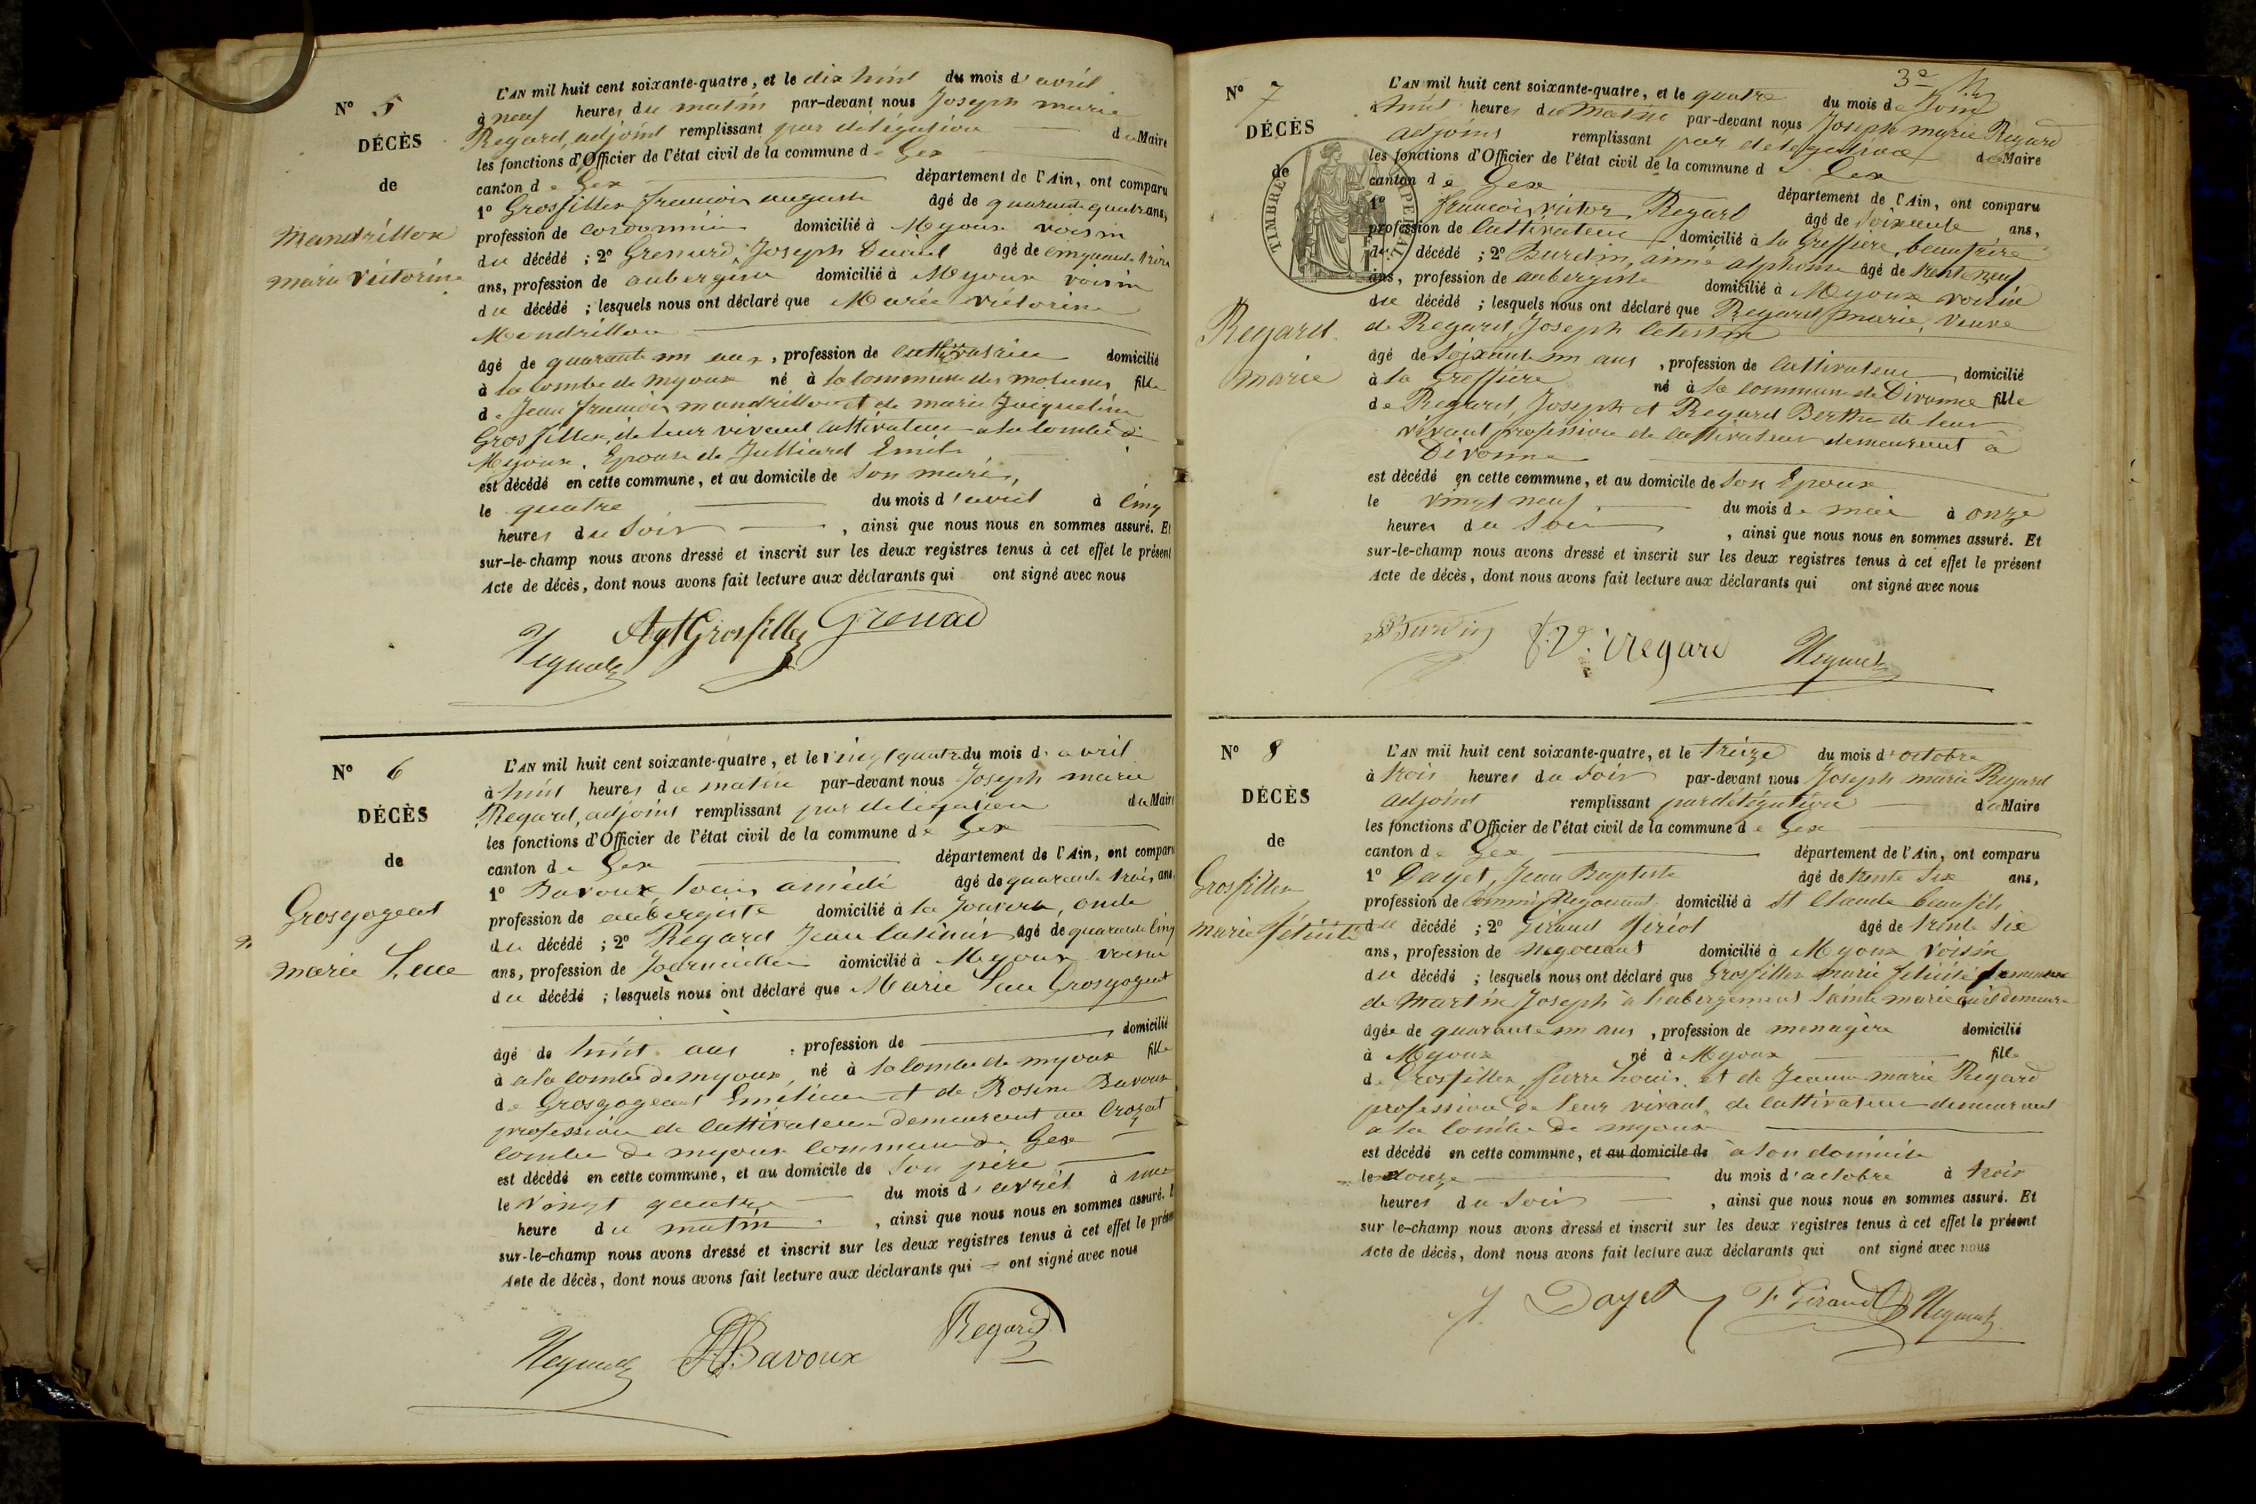 N° 5
DÉCÈS
de
Mandrillon
marie victorine
L'AN mil huit cent soixante-quatre, et le dix huit du mois d'avril
à neuf heures du matin par-devant nous Joseph marie
Regard, adjoint remplissant par délégation du Maire
les fonctions d'Officier de l'état civil de la commune de Gex
canton de Gex département de l'Ain, ont comparu
1° Grosfillex francois auguste âgé de quarante quatre ans,
profession de cordonnier domicilié à Mijoux voisin
du décédé ; 2° Grenard, Joseph âgé de cinquante trois
ans, profession de aubergiste domicilié à Mijoux voisin
du décédé ; lesquels nous ont déclaré que Marie victorine
Mandrillon
âgé de quarante un ans, profession de cultivatrice domicilié
à la combe de mijoux né à la commune des molunes fille
de Jean francois mandrillon et de marie Jacqueline
Grosfillex, de leur vivant cultivateur a la combe de
Mijoux. Epouse de Julliard Emile
est décédé en cette commune, et au domicile de son mari,
le quatre du mois d'avril à cinq
heures du soir, ainsi que nous nous en sommes assuré. Et
sur-le-champ nous avons dressé et inscrit sur les deux registres tenus à cet effet le présent
Acte de décès, dont nous avons fait lecture aux déclarants qui ont signé avec nous
Regard Agt Grosfillex Grenard
N° 6
DÉCÈS
de
Grosgogeat
marie
L'AN mil huit cent soixante-quatre, et le vingt quatre du mois d'avril
à huit heures du matin par-devant nous Joseph marie
Regard, adjoint remplissant par délégation du Maire
les fonctions d'Officier de l'état civil de la commune de Gex
canton de Gex département de l'Ain, ont comparu
1° Bavoux, Louis amédé âgé de quarante trois ans,
profession de aubergiste domicilié à la, oncle
du décédé ; 2° Regard Jean Casimir âgé de quarante cinq
ans, profession de Journalier domicilié à Mijoux voisin
du décédé ; lesquels nous ont déclaré que Marie Grosgogeat
âgé de huit ans, profession de domicilié
à a la combe de myoux, né à la combe de myoux fille
de Grosgogeat Emilien et de Rosine Bavoux
profession de cultivateur demeurant au Crozat
combe de myoux commune de Gex
est décédé en cette commune, et au domicile de son père
le vingt quatre du mois d'avril à une
heure du matin, ainsi que nous nous en sommes assuré. Et
sur-le-champ nous avons dressé et inscrit sur les deux registres tenus à cet effet le présent
Acte de décès, dont nous avons fait lecture aux déclarants qui ont signé avec nous
Regard Bavoux Regard
3e
N° 7
DÉCÈS
de
Regard
marie
TIMBRE IMPERIAL
L'AN mil huit cent soixante-quatre, et le quatre du mois de Juin
à huit heures du matin par-devant nous Joseph marie Regard
adjoint remplissant par délégation du Maire
les fonctions d'Officier de l'état civil de la commune de Gex
canton de Gex département de l'Ain, ont comparu
1° francois victor Regard âgé de soixante ans,
profession de Cultivateur domicilié à la Greffiere, beaufrère
du décédé ; 2° Burdin, aimé alphonse âgé de trente neuf
ans, profession de aubergiste domicilié à Myoux voisin
du décédé ; lesquels nous ont déclaré que Regard marie, veuve
de Regard, Joseph Celestin
âgé de soixante un ans, profession de cultivateur domicilié
à la Greffiere né à la commune de Divonne fille
de Regard, Joseph et Regard Berthe de leur
vivant profession de cultivateur demeurant à
Divonne
est décédé en cette commune, et au domicile de son Epoux
le vingt neuf du mois de mai à onze
heures du soir, ainsi que nous nous en sommes assuré. Et
sur-le-champ nous avons dressé et inscrit sur les deux registres tenus à cet effet le présent
Acte de décès, dont nous avons fait lecture aux déclarants qui ont signé avec nous
Burdin f. V. Regard Regard
N° 8
DÉCÈS
de
Grosfillex
marie félicité
L'AN mil huit cent soixante-quatre, et le treize du mois d'octobre
à trois heures du soir par-devant nous Joseph marie Regard
adjoint remplissant par délégation du Maire
les fonctions d'Officier de l'état civil de la commune de Gex
canton de Gex département de l'Ain, ont comparu
1° Dayet, Jean Baptiste âgé de trente six ans,
profession de Commis Negociant domicilié à St Claude beaufils
du décédé ; 2° Giraud féréol âgé de trente six
ans, profession de negociant domicilié à Myoux Voisin
du décédé ; lesquels nous ont déclaré que Grosfillex marie félicité femme
de Martin Joseph a habergement Sainte marie demeure
âgée de quarante un ans, profession de menagère domicilié
à Myoux né à Myoux fille
de Grosfillex, pierre Louis, et de Jeanne marie Regard
profession de leur vivant, de cultivateur demeurant
a la combe de myoux
est décédé en cette commune, et au domicile de à son domicile
le douze du mois d'octobre à trois
heures du soir, ainsi que nous nous en sommes assuré. Et
sur le-champ nous avons dressé et inscrit sur les deux registres tenus à cet effet le présent
Acte de décès, dont nous avons fait lecture aux déclarants qui ont signé avec nous
J. Dayet F. Giraud Regard